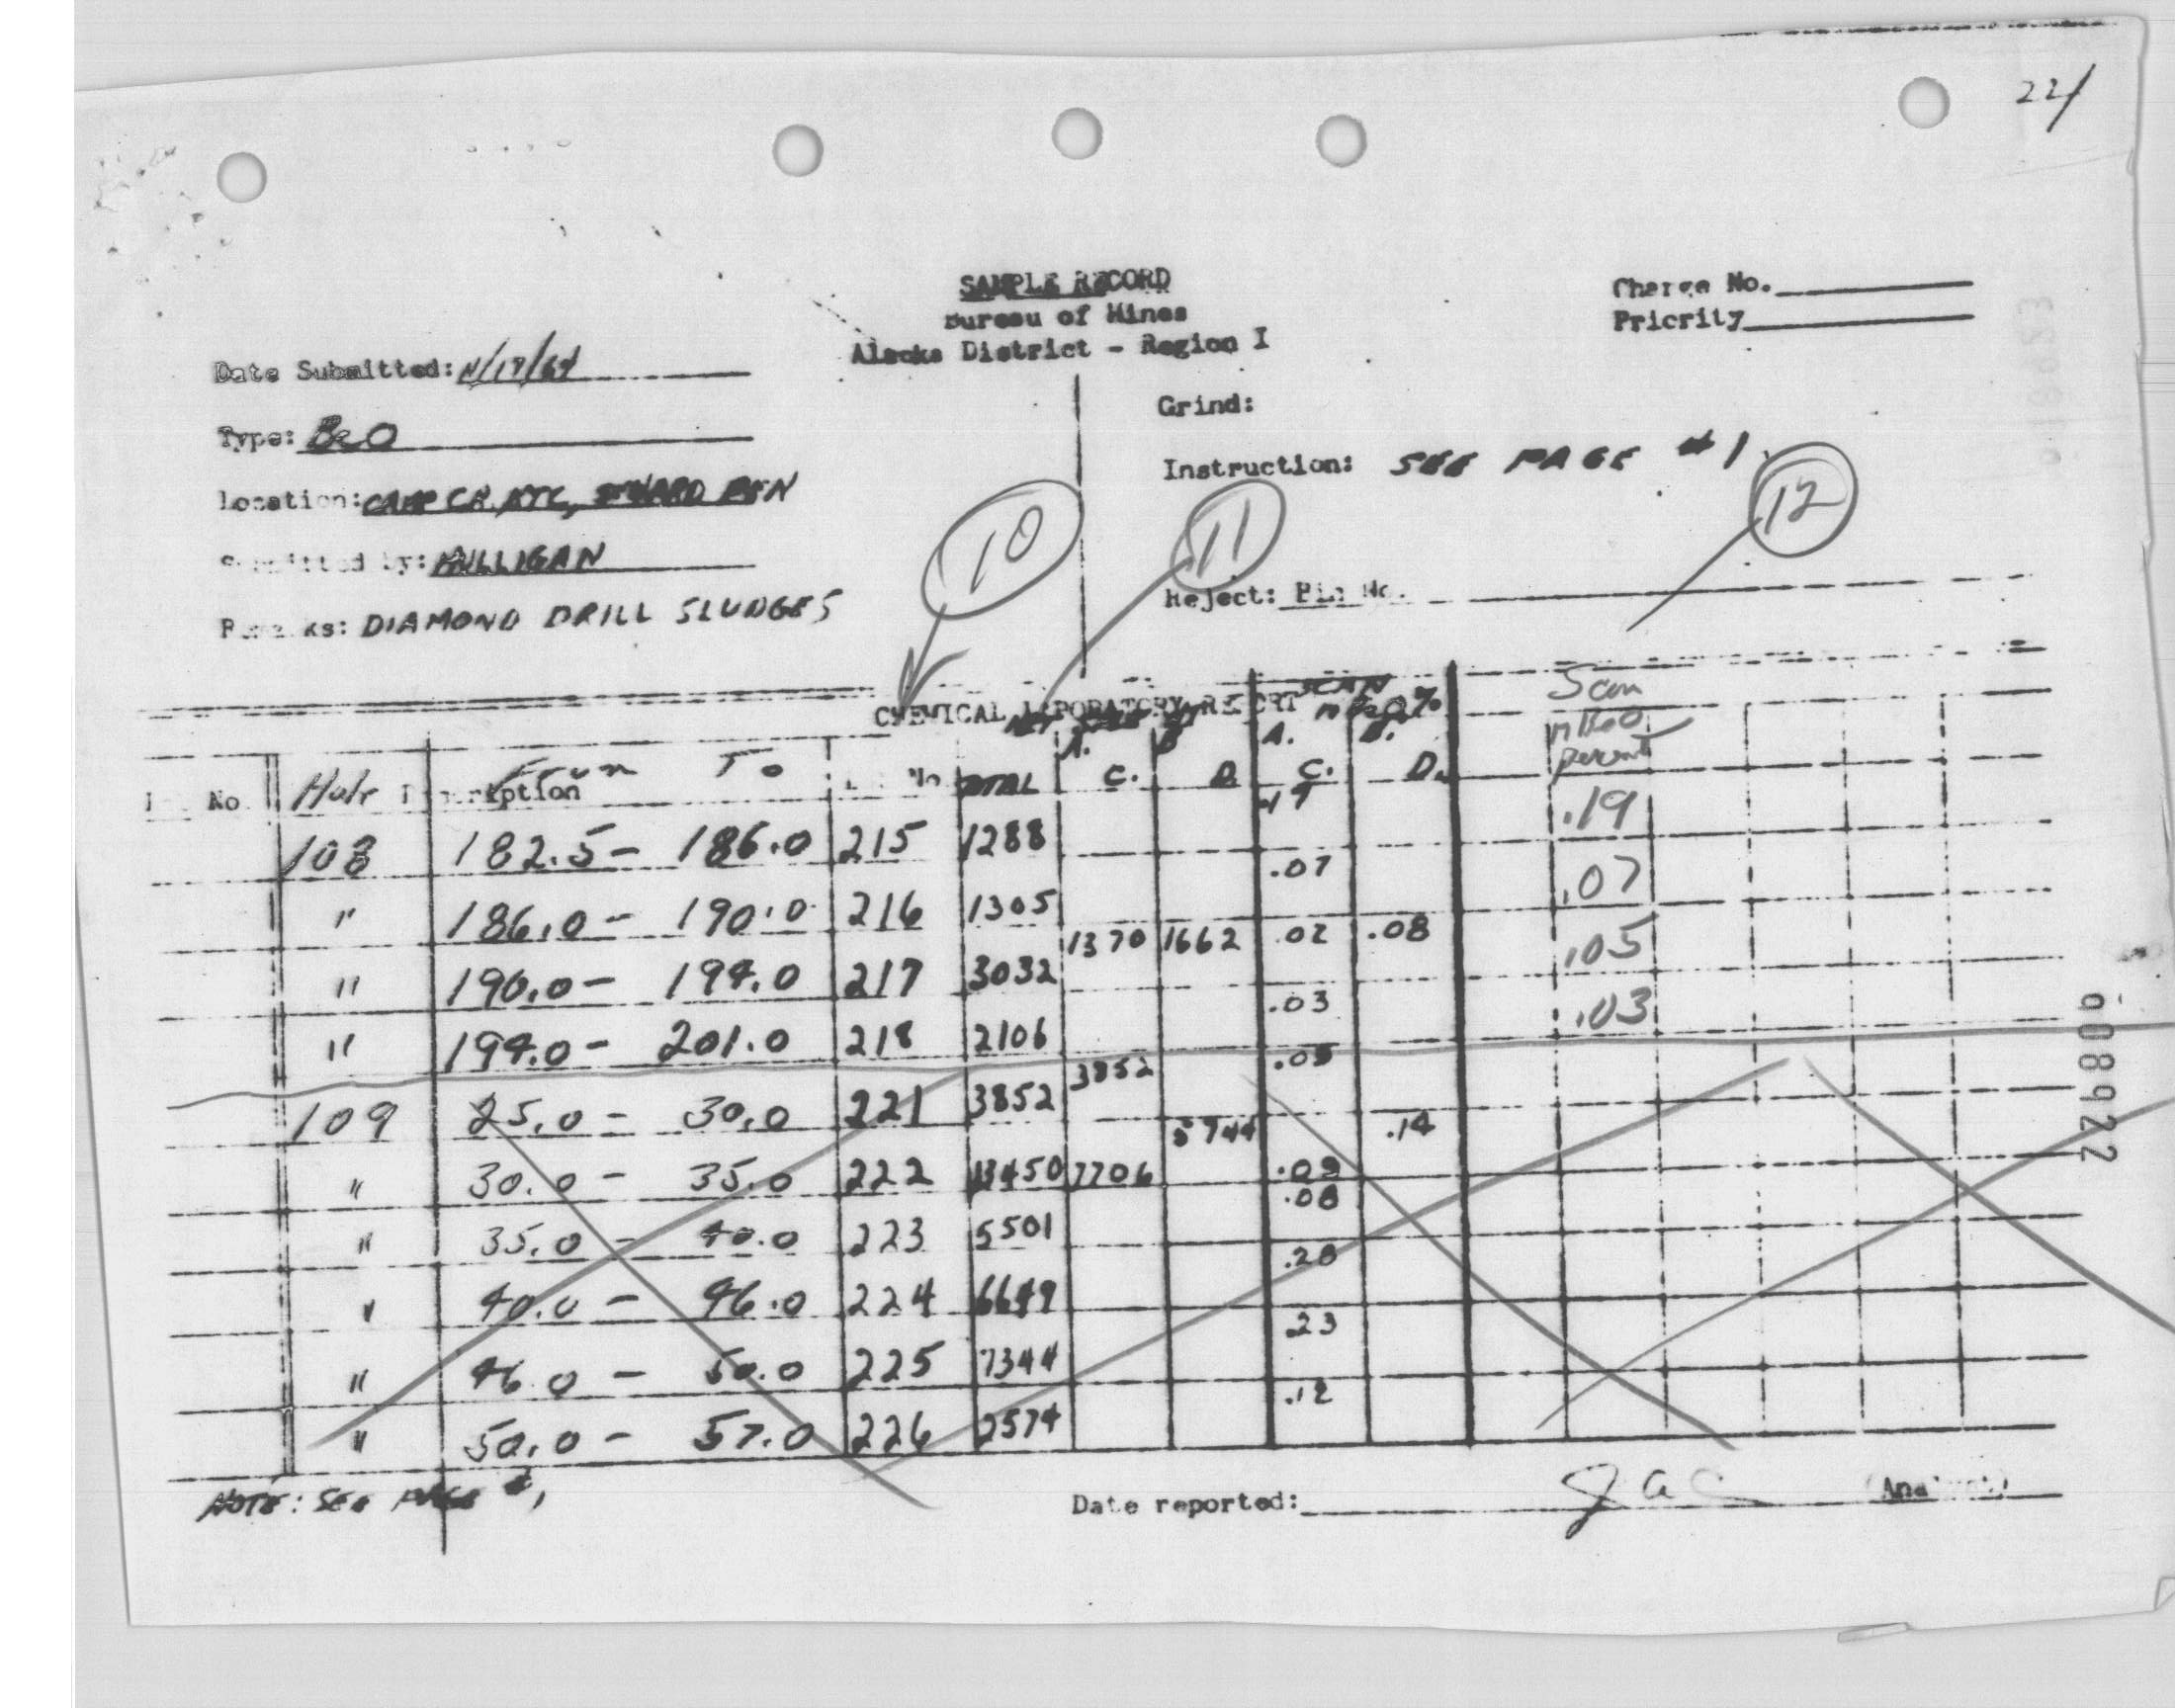 22/
SAMPLE RECORD
Bureau of Mines
Alaska District - Region I
Charge No.
Priority
Date Submitted: 11/17/64
Type: BeO
Location:
Submitted by: MULLIGAN
Remarks: DIAMOND DRILL SLUDGES
Grind:
Instruction: SEE PAGE #1.
Reject: Bin No.
10
11
12
CHEMICAL LABORATORY REPORT
SCAN
BeO%
Scan
BeO
percent
A. B. A. B.
No. Hole Description From To No. TOTAL C. D. C. D.
108 182.5 - 186.0 215 1288 .19 .19
" 186.0 - 190.0 216 1305 .07 .07
" 190.0 - 194.0 217 3032 1370 1662 .02 .08 .05
" 194.0 - 201.0 218 2106 .03 .03
109 25.0 - 30.0 221 3852 3852
" 30.0 - 35.0 222 13450 7706 5744 .09 .14
" 35.0 - 40.0 223 5501 .08
" 40.0 - 46.0 224 6649 .28
" 46.0 - 50.0 225 7344 .23
" 50.0 - 57.0 226 2574 .12
NOTE: SEE PAGE #1
Date reported: JAC (Analyst)
008922